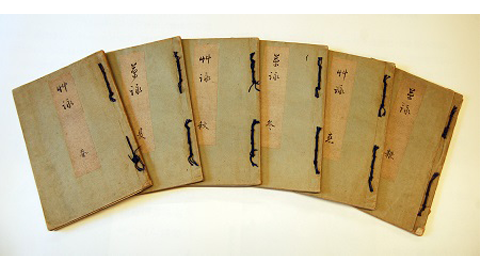 艸詠
春
草詠
夏
艸詠
秋
草詠
冬
艸詠
草詠